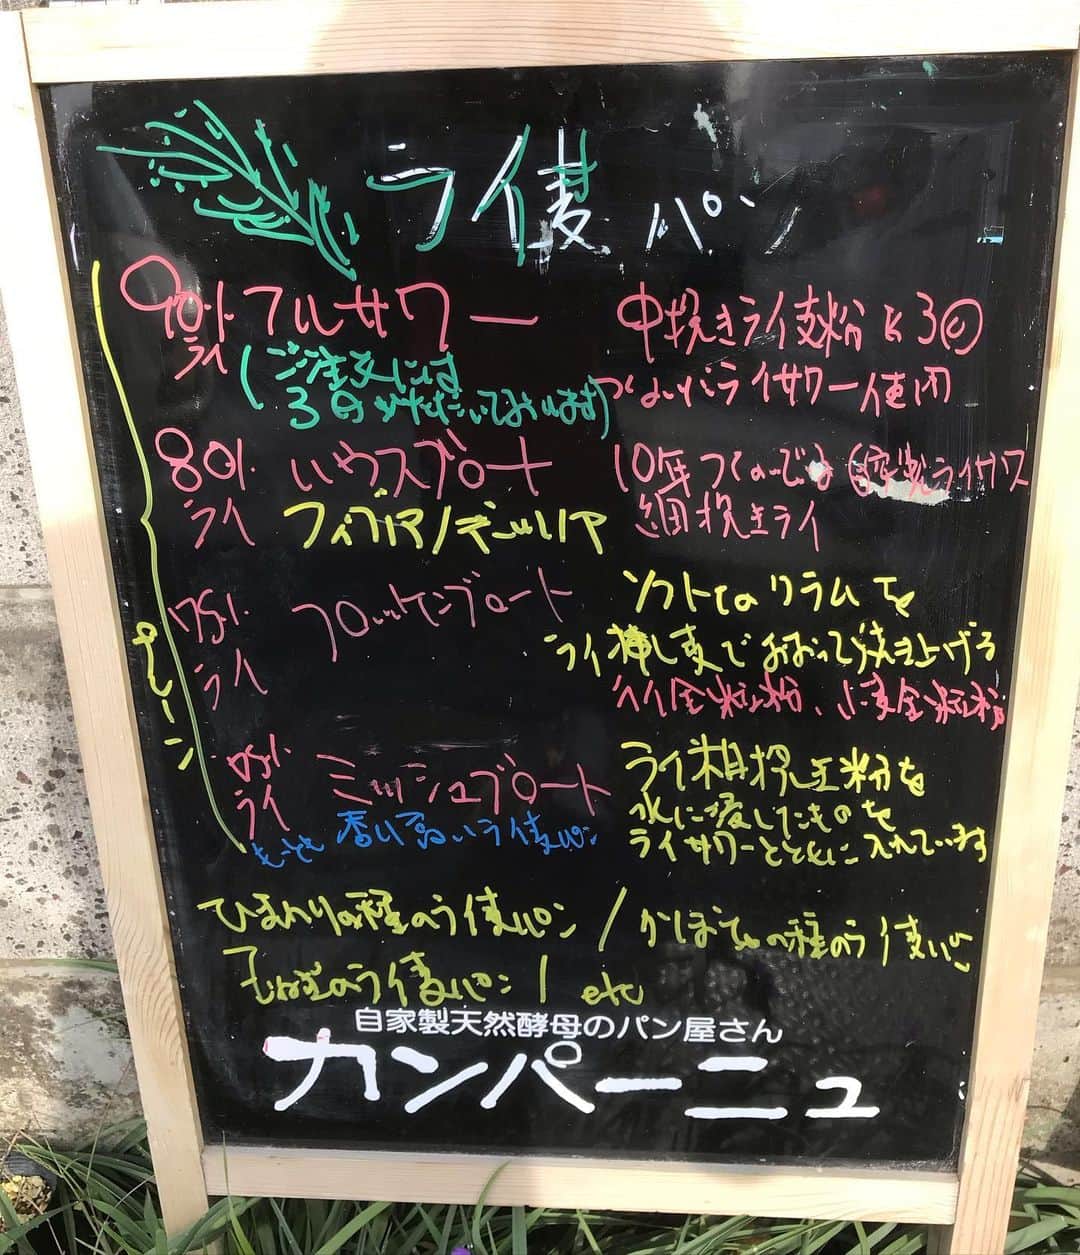 ライ麦パン
90% フルサワー
ライ
(ご注文には
3日いただいております)
中挽きライ麦粉 3回
ライサワー使用
80% ハウスブロート
ライ
10年つないでる自家製ライサワー
細挽きライ
75% フロッケンブロート
ライ
ソフトなクラムを
ライ押し麦でおおって焼き上げる
ライ全粒粉、小麦全粒粉
プレーン
75% ミッシュブロート
ライ
もっとも香り高いライ麦パン
ライ粗挽き全粉を
水に浸したものを
ライサワーとともに入れています
ひまわりの種のライ麦パン / かぼちゃの種のライ麦パン
ライ麦パン / etc
自家製天然酵母のパン屋さん
カンパーニュ